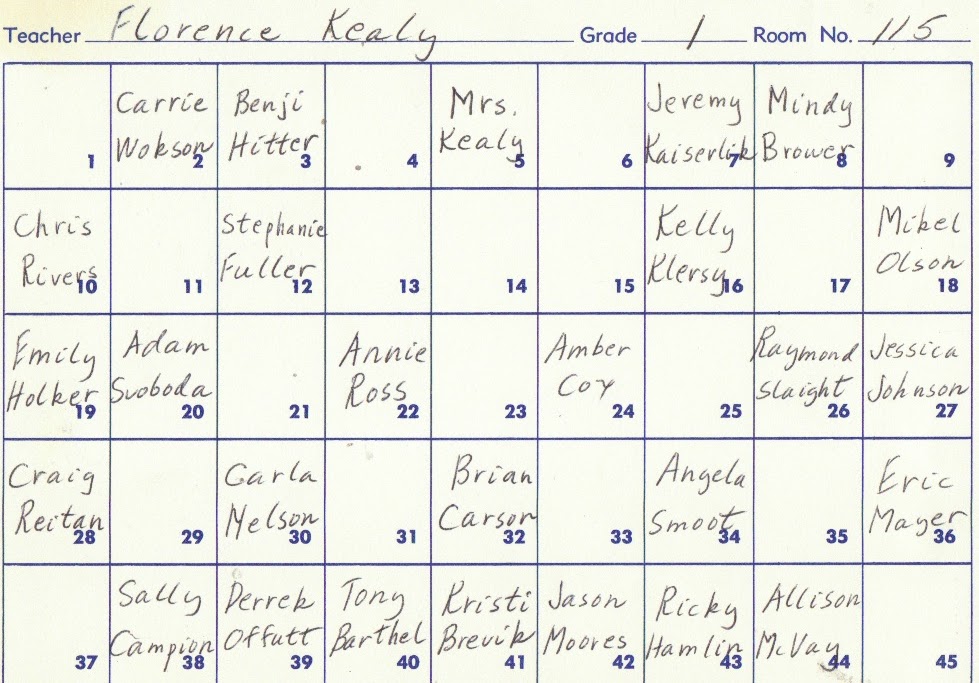 Teacher Florence Kealy Grade 1 Room No. 115
1
Carrie
Wokson 2
Benji
Hitter 3
4
Mrs.
Kealy 5
6
Jeremy
Kaiserlik 7
Mindy
Brower 8
9
Chris
Rivers 10
11
Stephanie
Fuller 12
13
14
15
Kelly
Klersy 16
17
Mikel
Olson 18
Emily
Holker 19
Adam
Svoboda 20
21
Annie
Ross 22
23
Amber
Cox 24
25
Raymond
Slaight 26
Jessica
Johnson 27
Craig
Reitan 28
29
Carla
Nelson 30
31
Brian
Carson 32
33
Angela
Smoot 34
35
Eric
Mayer 36
37
Sally
Campion 38
Derrek
Offutt 39
Tony
Barthel 40
Kristi
Brevik 41
Jason
Moores 42
Ricky
Hamlin 43
Allison
McVay 44
45